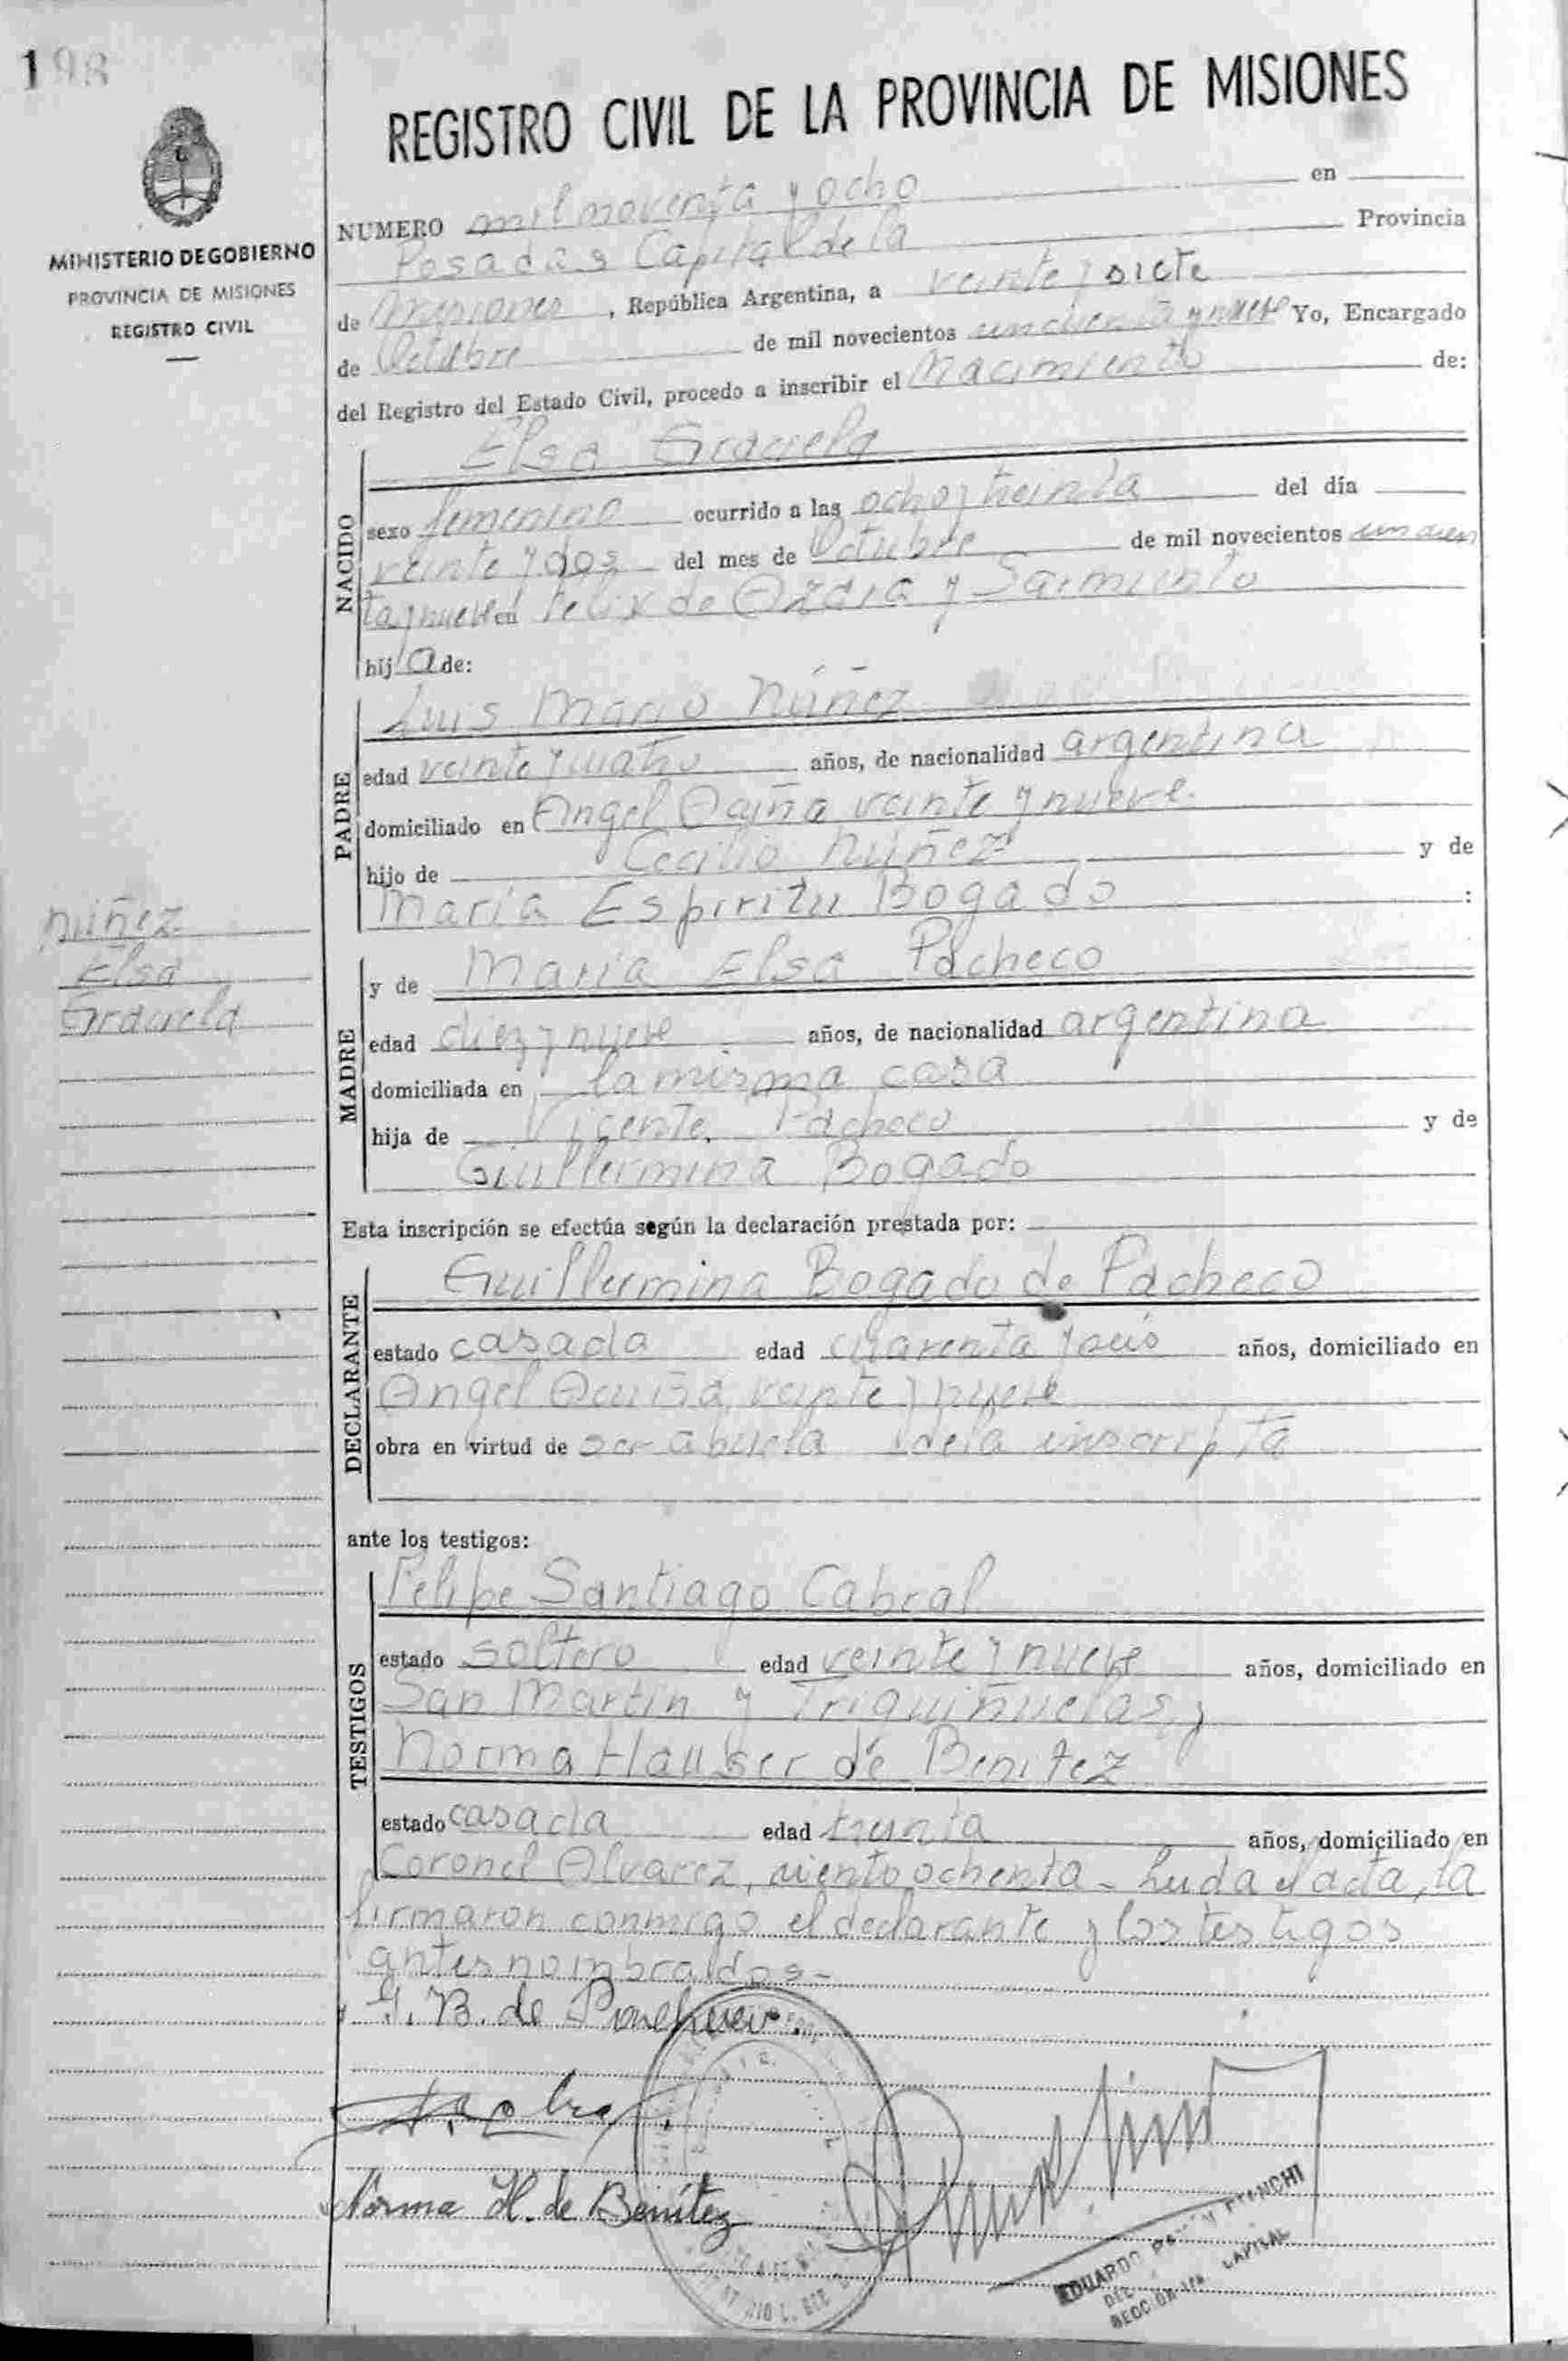 198
MINISTERIO DE GOBIERNO
PROVINCIA DE MISIONES
REGISTRO CIVIL
REGISTRO CIVIL DE LA PROVINCIA DE MISIONES
NUMERO mil noventa y ocho en
Posadas Capital de la Provincia
de Misiones, República Argentina, a veinte y siete
de Octubre de mil novecientos cincuenta y nueve Yo, Encargado
del Registro del Estado Civil, procedo a inscribir el Nacimiento de:
NACIDO
Elsa Graciela
sexo femenino ocurrido a las ocho y treinta del día
veinte y dos del mes de Octubre de mil novecientos cincuen
ta y nueve en Felix de Azara y Sarmiento
hija de:
PADRE
Luis Mario Núñez
edad veinte y cuatro años, de nacionalidad argentina
domiciliado en Angel Acuña veinte y nueve.
hijo de Cecilio Núñez y de
María Espiritu Bogado :
Núñez
Elsa
Graciela
MADRE
y de María Elsa Pacheco
edad diez y nueve años, de nacionalidad argentina
domiciliada en la misma casa
hija de Vicente Pacheco y de
Guillermina Bogado
Esta inscripción se efectúa según la declaración prestada por:
DECLARANTE
Guillermina Bogado de Pacheco
estado casada edad cuarenta y seis años, domiciliado en
Angel Acuña veinte y nueve
obra en virtud de ser abuela de la inscripta
ante los testigos:
TESTIGOS
Felipe Santiago Cabral
estado soltero edad veinte y nueve años, domiciliado en
San Martin y Triquiñuelas y
Norma Hauser de Benitez
estado casada edad treinta años, domiciliado en
Coronel Alvarez, ciento ochenta - Leida el acta, la
firmaron conmigo el declarante y los testigos
antes nombrados-
G. B. de
Norma H. de Benítez
EDUARDO BIANCHI
SECCION 1ra. CAPITAL